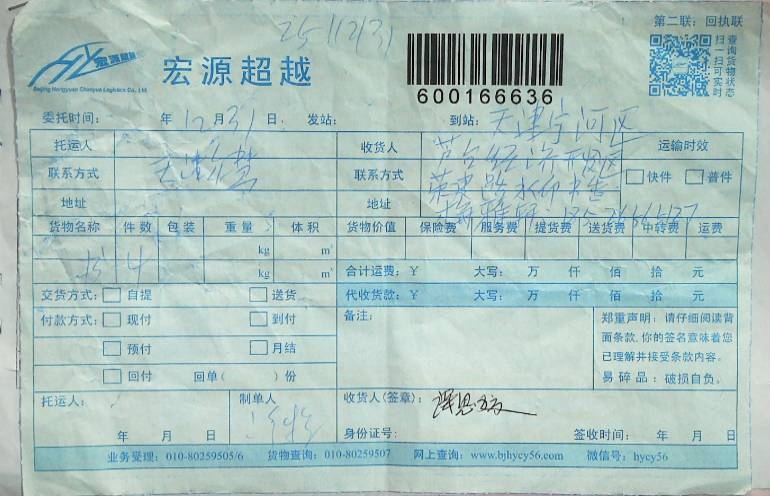 25 12/31
第二联：回执联
宏源超越
宏源超越
Beijing Hongyuan Chaoyue Logistics Co., Ltd.
600166636
扫一扫可实时
查询货物状态
委托时间： 年12月31日 发站： 到站：天津宁河区
托运人 收货人 芦台经济开发区 运输时效
联系方式 联系方式 快件 普件
地址 地址
货物名称 件数 包装 重量 体积 货物价值 保险费 服务费 提货费 送货费 中转费 运费
kg m³
书 4 kg m³ 合计运费：￥ 大写： 万 仟 佰 拾 元
交货方式： 自提 送货 代收货款：￥ 大写： 万 仟 佰 拾 元
付款方式： 现付 到付 备注： 郑重声明：请仔细阅读背
面条款，你的签名意味着您
预付 月结 已理解并接受条款内容。
回付 回单（ ）份 易碎品：破损自负。
托运人： 制单人 收货人(签章)：
年 月 日 身份证号： 签收时间： 年 月 日
业务受理：010-80259505/6 货物查询：010-80259507 网上查询：www.bjhycy56.com 微信号：hycy56